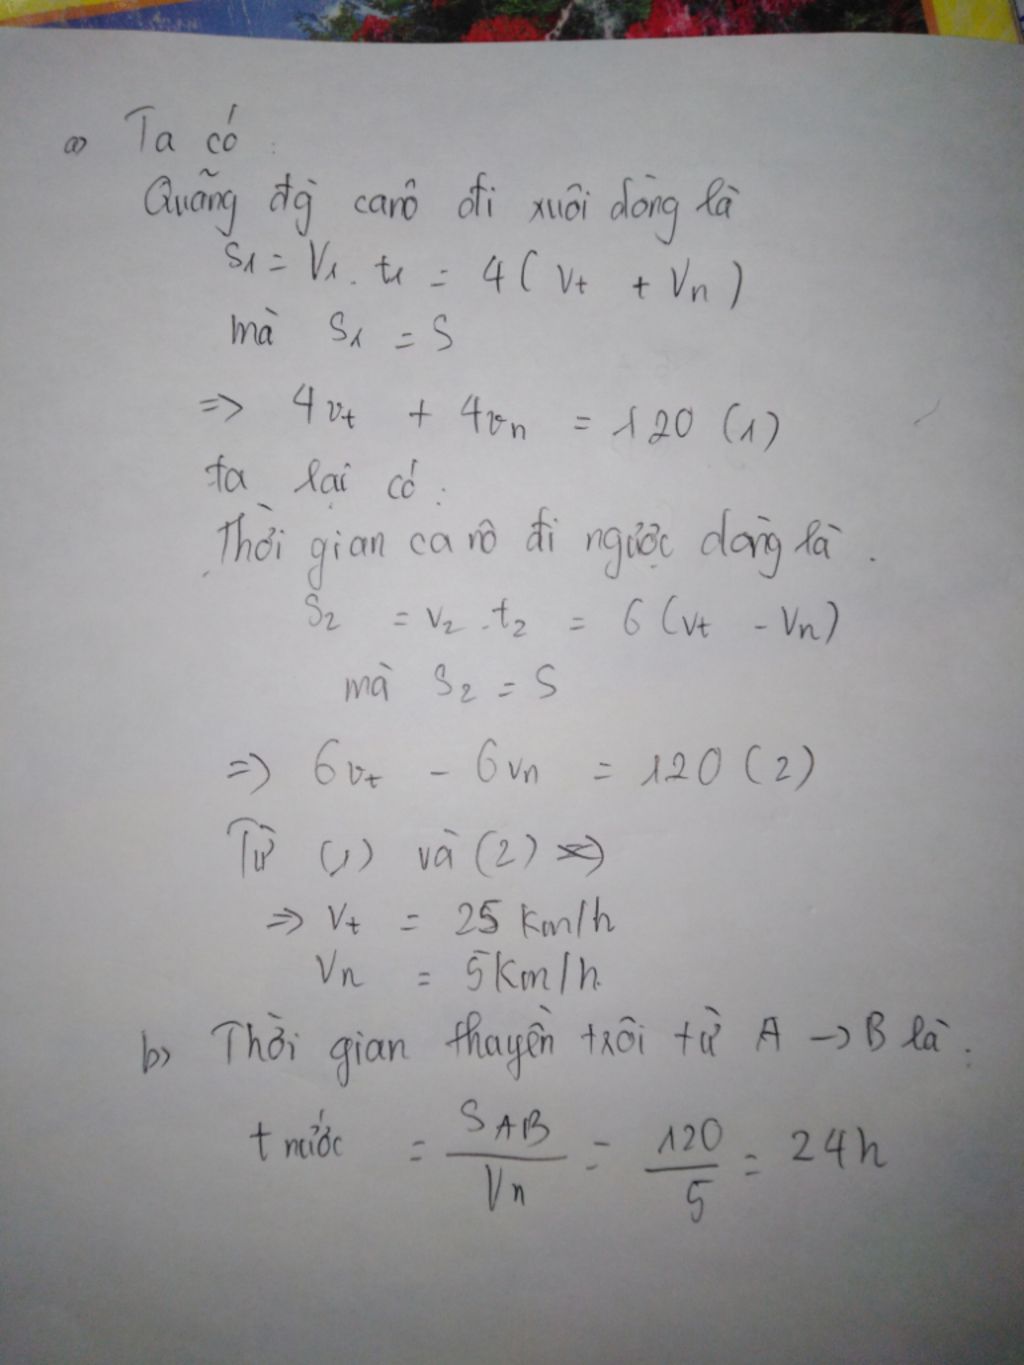 a) Ta có:
Quãng đg canô đi xuôi dòng là
S1 = V1. t1 = 4( Vt + Vn )
mà S1 = S
=> 4vt + 4vn = 120 (1)
ta lại có:
Thời gian ca nô đi ngược dòng là.
S2 = V2 . t2 = 6 (Vt - Vn)
mà S2 = S
=> 6vt - 6vn = 120 (2)
Từ (1) và (2)
=> Vt = 25 Km/h
Vn = 5Km/h.
b) Thời gian thuyền trôi từ A -> B là:
t nước = SAB / Vn = 120 / 5 = 24h